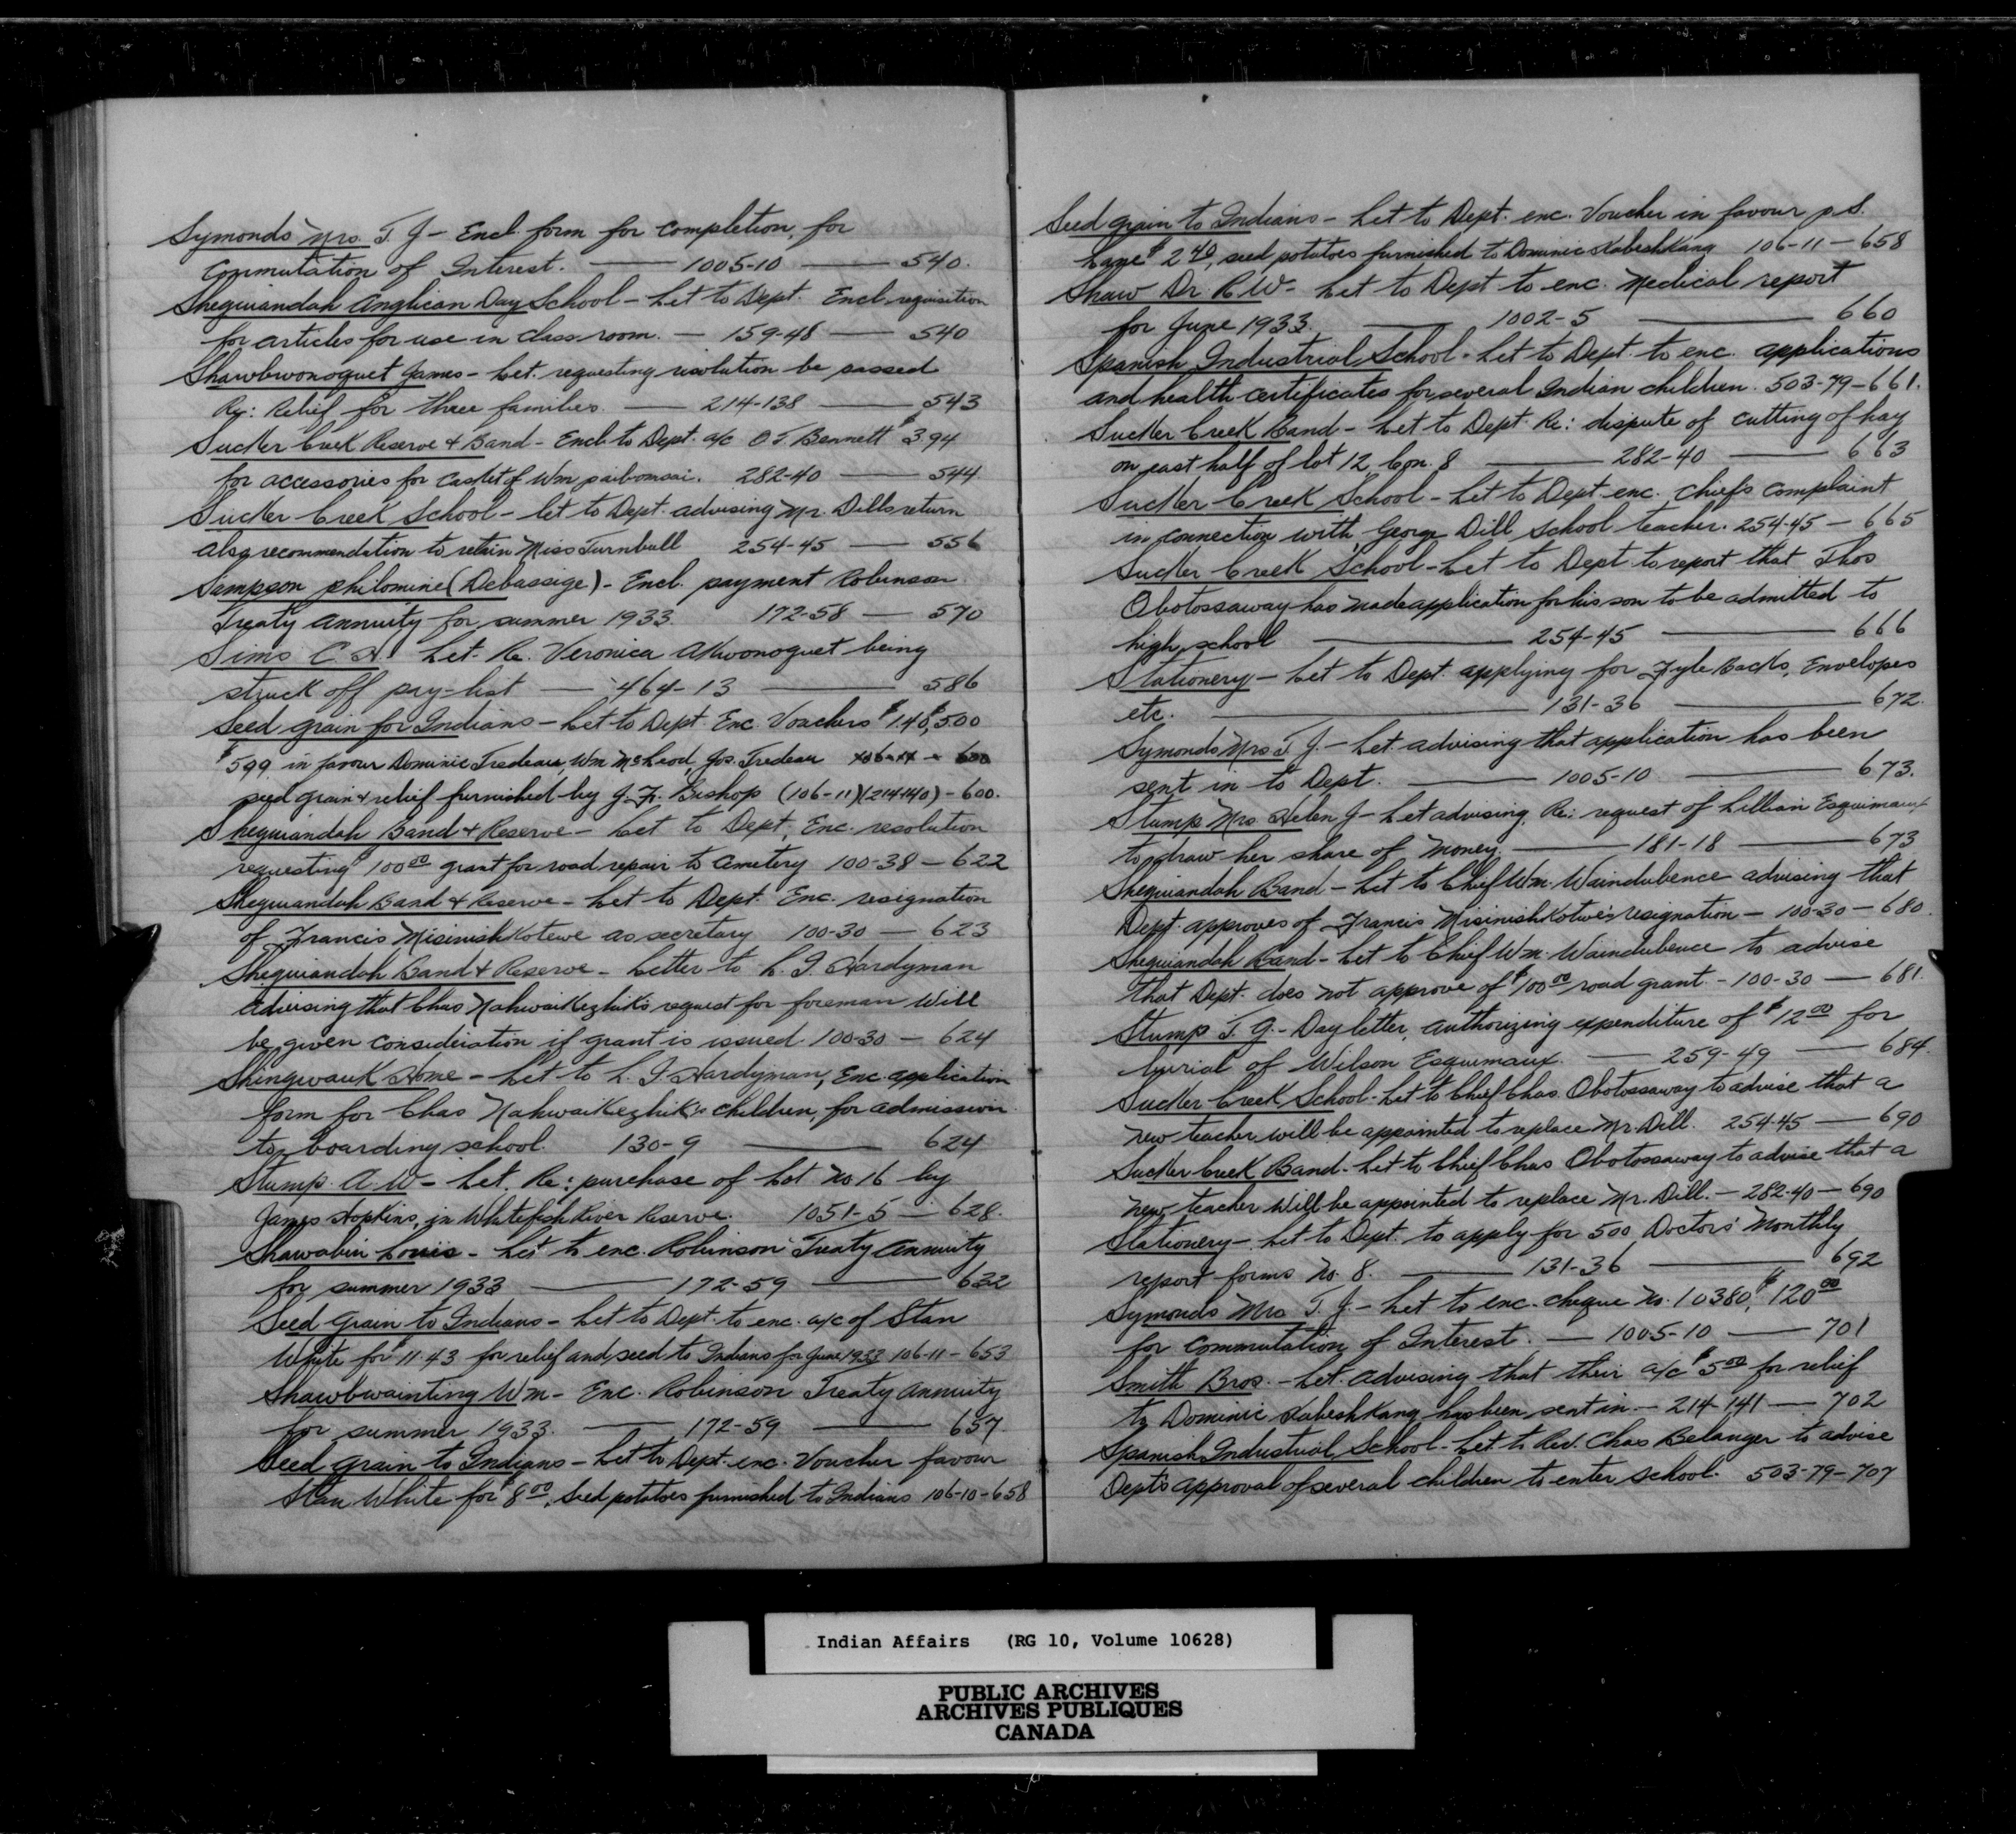 Symonds Mrs. T. J - Encl. form for completion, for
Commutation of Interest. — 1005-10 — 540.
Sheguiandah Anglican Day School - Let to Dept. Encl requisition
for articles for use in class room. — 159-48 — 540
Shawbwonoquet James - Let. requesting resolution be passed
Re: Relief for three families. — 214-138 — 543
Sucker Creek Reserve & Band - Encl. to Dept. a/c O.T. Bennett $3.94
for accessories for casket of Wm paibomsai. 282-40 — 544
Sucker Creek School - let to Dept. advising Mr. Dills return
also recommendation to retain Miss Turnbull 254-45 — 556
Sampson Philomine (Debassige) - Encl. payment Robinson
Treaty Annuity for summer 1933. 172-58 — 570
Sims C. A. Let. Re. Veronica Akwonoquet being
struck off pay-list — 464-13 — 586
Seed grain for Indians - Let to Dept. Enc. Vouchers $1.40, $5.00
$5.99 in favour Dominic Tredeau, Wm McLeod, Jos. Tredeau 106-11 - 600
seed grain & relief furnished by J. F. Bishop (106-11)(214-140) - 600.
Sheguiandah Band & Reserve - Let to Dept. Enc. resolution
requesting $100.00 grant for road repair to cemetery 100-38 - 622
Sheguiandah Band & Reserve - Let to Dept. Enc. resignation
of Francis Misinishkotewe as secretary 100-30 — 623
Sheguiandah Band & Reserve - Letter to L. G. Hardyman
advising that Chas Nahwaikezhik's request for foreman will
be given consideration if grant is issued. 100-30 — 624
Shingwauk Home - Let to L. G. Hardyman, Enc. application
form for Chas Nahwaikezhik's children, for admission
to boarding school. 130-9 — 624
Stump A. W - Let. Re: purchase of Lot No 16 by
James Hopkins, in Whitefish River Reserve. 1051-5 — 628.
Shawabin Louis - Let to enc. Robinson Treaty Annuity
for summer 1933 — 172-59 — 632
Seed Grain to Indians - Let to Dept. to enc. a/c of Stan
White for $11.43 for relief and seed to Indians for June 1933 106-11 - 653
Shawbwainting Wm - Enc. Robinson Treaty Annuity
for summer 1933. — 172-59 — 657
Seed grain to Indians - Let to Dept. enc. Voucher favour
Stan White for $8.00, seed potatoes furnished to Indians 106-10-658
Seed grain to Indians - Let to Dept. enc. Voucher in favour p.S.
Lane $2.40, seed potatoes furnished to Dominic Kabeshkang 106-11 - 658
Shaw Dr. R W - Let to Dept to enc. Medical report
for June 1933. — 1002-5 — 660
Spanish Industrial School - Let to Dept. to enc. applications
and health certificates for several Indian children. 503-79-661.
Sucker Creek Band - Let to Dept. Re: dispute of cutting of hay
on east half of lot 12, Con. 8 — 282-40 — 663
Sucker Creek School - Let to Dept. enc. Chiefs complaint
in connection with George Dill school teacher. 254-45 - 665
Sucker Creek School - Let to Dept to report that Thos
Obotossaway has made application for his son to be admitted to
high school — 254-45 — 666
Stationery - Let to Dept. applying for Fyle Backs, Envelopes
etc. — 131-36 — 672.
Symonds Mrs T. J. - Let. advising that application has been
sent in to Dept. — 1005-10 — 673.
Stump Mrs Helen J - Let advising, Re: request of Lillian Esquimaux
to draw her share of money. — 181-18 — 673
Sheguiandah Band - Let to Chief Wm. Waindubence advising that
Dept. approves of Francis Misinishkotwe's resignation - 100-30 - 680.
Sheguiandah Band - Let to Chief Wm. Waindubence to advise
that Dept. does not approve of $100.00 road grant. - 100-30 — 681.
Stump T. G. - Day letter, authorizing expenditure of $12.00 for
burial of Wilson Esquimaux. — 259-49 — 684.
Sucker Creek School - Let to Chief Chas. Obotossaway to advise that a
new teacher will be appointed to replace Mr. Dill. 254-45 — 690
Sucker Creek Band - Let to Chief Chas Obotossaway to advise that a
new teacher will be appointed to replace Mr. Dill. - 282-40 - 690
Stationery - Let to Dept. to apply for 500 Doctors' Monthly
report forms No. 8. — 131-36 — 692
Symonds Mrs T. J. - Let to enc. cheque No. 10380, $120.00
for commutation of Interest. — 1005-10 — 701
Smith Bros. - Let. advising that their a/c $5.00 for relief
to Dominic Kabeshkang has been sent in. - 214-141 — 702
Spanish Industrial School - Let. to Rev. Chas Belanger to advise
Dept's approval of several children to enter school. 503-79-707
Indian Affairs (RG 10, Volume 10628)
PUBLIC ARCHIVES
ARCHIVES PUBLIQUES
CANADA